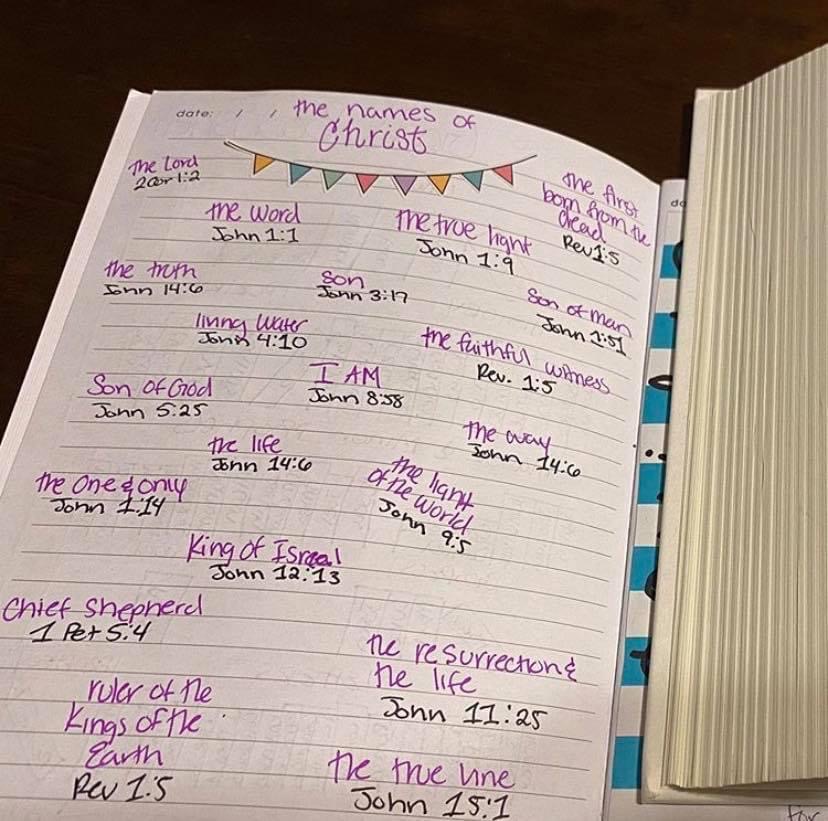 date: / /
the names of
Christ
the Lord
2 Cor 1:2
the first
born from the
dead
Rev 1:5
the word
John 1:1
the true light
John 1:9
the truth
John 14:6
Son
John 3:17
Son of man
John 1:51
living water
John 4:10
the faithful witness
Rev. 1:5
Son of God
John 5:25
I AM
John 8:58
the way
John 14:6
the life
John 14:6
the One & only
John 1:14
the light
of the world
John 9:5
King of Isreal
John 12:13
Chief Shepherd
1 Pet 5:4
the resurrection &
the life
John 11:25
ruler of the
Kings of the
Earth
Rev 1:5
the true vine
John 15:1
do
for